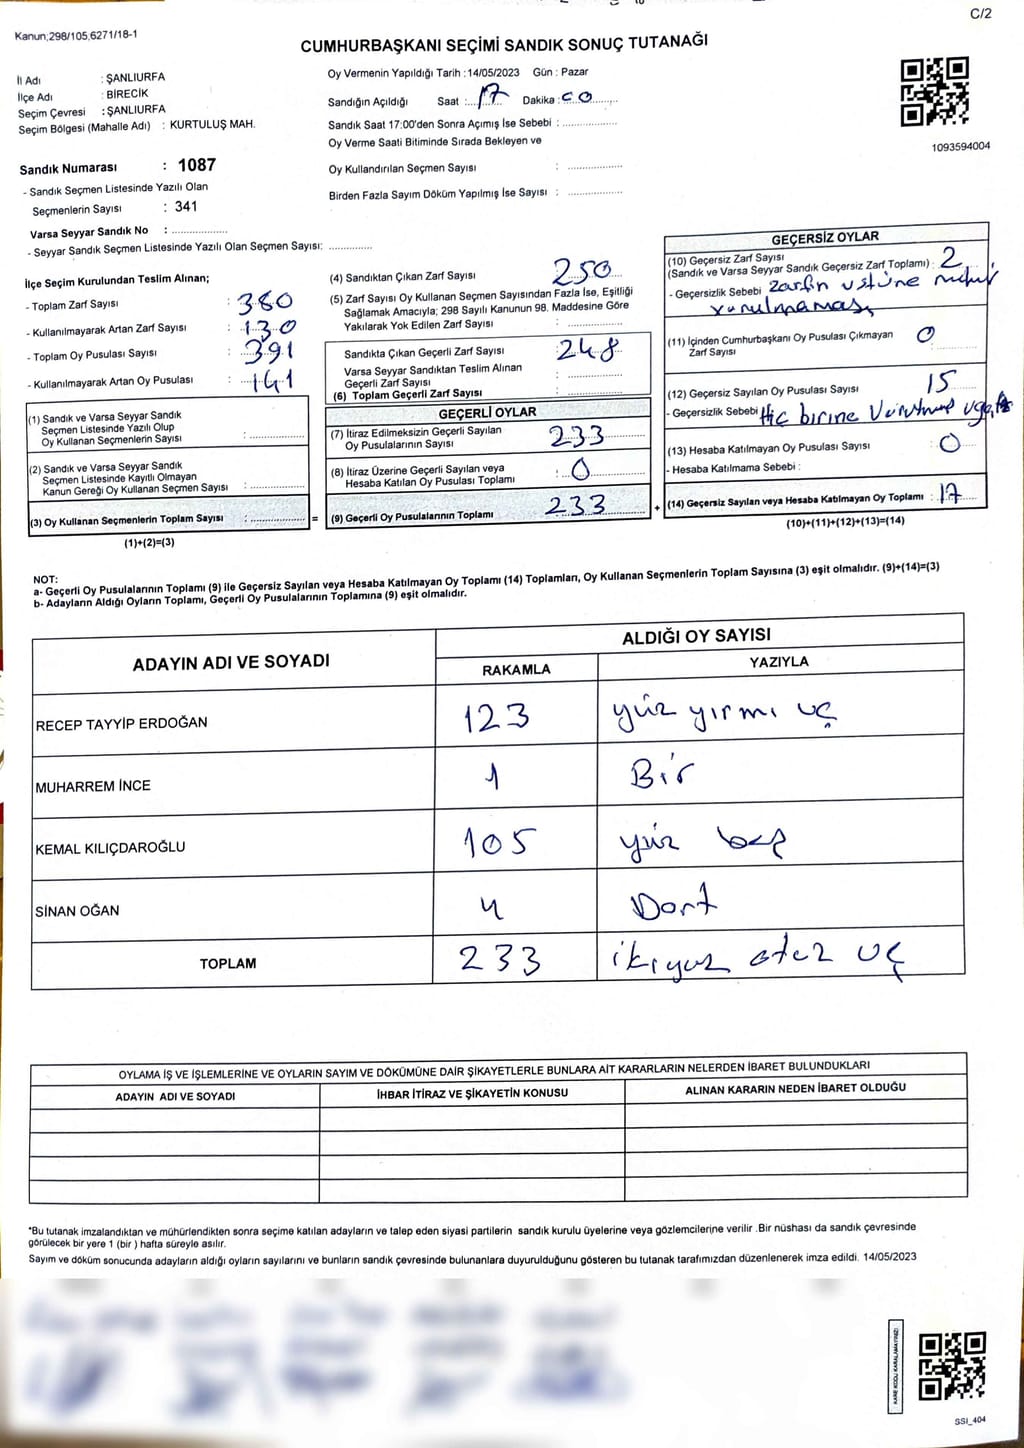 C/2
Kanun;298/105,6271/18-1
CUMHURBAŞKANI SEÇİMİ SANDIK SONUÇ TUTANAĞI
İl Adı : ŞANLIURFA
İlçe Adı : BİRECİK
Seçim Çevresi : ŞANLIURFA
Seçim Bölgesi (Mahalle Adı) : KURTULUŞ MAH.
Oy Vermenin Yapıldığı Tarih :14/05/2023 Gün : Pazar
Sandığın Açıldığı Saat :17 Dakika :00
Sandık Saat 17:00'den Sonra Açımış İse Sebebi :
Oy Verme Saati Bitiminde Sırada Bekleyen ve
Oy Kullandırılan Seçmen Sayısı :
Birden Fazla Sayım Döküm Yapılmış İse Sayısı :
1093594004
Sandık Numarası : 1087
- Sandık Seçmen Listesinde Yazılı Olan
Seçmenlerin Sayısı : 341
Varsa Seyyar Sandık No :
- Seyyar Sandık Seçmen Listesinde Yazılı Olan Seçmen Sayısı:
İlçe Seçim Kurulundan Teslim Alınan;
- Toplam Zarf Sayısı : 380
- Kullanılmayarak Artan Zarf Sayısı : 130
- Toplam Oy Pusulası Sayısı : 391
- Kullanılmayarak Artan Oy Pusulası : 141
(1) Sandık ve Varsa Seyyar Sandık
Seçmen Listesinde Yazılı Olup
Oy Kullanan Seçmenlerin Sayısı :
(2) Sandık ve Varsa Seyyar Sandık
Seçmen Listesinde Kayıtlı Olmayan
Kanun Gereği Oy Kullanan Seçmen Sayısı :
(3) Oy Kullanan Seçmenlerin Toplam Sayısı : =
(1)+(2)=(3)
(4) Sandıktan Çıkan Zarf Sayısı 250
(5) Zarf Sayısı Oy Kullanan Seçmen Sayısından Fazla İse, Eşitliği
Sağlamak Amacıyla; 298 Sayılı Kanunun 98. Maddesine Göre
Yakılarak Yok Edilen Zarf Sayısı :
Sandıkta Çıkan Geçerli Zarf Sayısı : 248
Varsa Seyyar Sandıktan Teslim Alınan
Geçerli Zarf Sayısı :
(6) Toplam Geçerli Zarf Sayısı :
GEÇERLİ OYLAR
(7) İtiraz Edilmeksizin Geçerli Sayılan
Oy Pusulalarının Sayısı 233
(8) İtiraz Üzerine Geçerli Sayılan veya
Hesaba Katılan Oy Pusulası Toplamı : 0
(9) Geçerli Oy Pusulalarının Toplamı 233 +
GEÇERSİZ OYLAR
(10) Geçersiz Zarf Sayısı
(Sandık ve Varsa Seyyar Sandık Geçersiz Zarf Toplamı) : 2
- Geçersizlik Sebebi Zarfın üstüne mühür
vurulması
(11) İçinden Cumhurbaşkanı Oy Pusulası Çıkmayan
Zarf Sayısı 0
(12) Geçersiz Sayılan Oy Pusulası Sayısı 15
- Geçersizlik Sebebi Hiç birine
(13) Hesaba Katılmayan Oy Pusulası Sayısı : 0
- Hesaba Katılmama Sebebi :
(14) Geçersiz Sayılan veya Hesaba Katılmayan Oy Toplamı : 17
(10)+(11)+(12)+(13)=(14)
NOT:
a- Geçerli Oy Pusulalarının Toplamı (9) ile Geçersiz Sayılan veya Hesaba Katılmayan Oy Toplamı (14) Toplamları, Oy Kullanan Seçmenlerin Toplam Sayısına (3) eşit olmalıdır. (9)+(14)=(3)
b- Adayların Aldığı Oyların Toplamı, Geçerli Oy Pusulalarının Toplamına (9) eşit olmalıdır.
ADAYIN ADI VE SOYADI
ALDIĞI OY SAYISI
RAKAMLA YAZIYLA
RECEP TAYYİP ERDOĞAN 123 yüz yırmı üç
MUHARREM İNCE 1 Bir
KEMAL KILIÇDAROĞLU 105 yüz beş
SİNAN OĞAN 4 Dört
TOPLAM 233 ikiyüz otuz üç
OYLAMA İŞ VE İŞLEMLERİNE VE OYLARIN SAYIM VE DÖKÜMÜNE DAİR ŞİKAYETLERLE BUNLARA AİT KARARLARIN NELERDEN İBARET BULUNDUKLARI
ADAYIN ADI VE SOYADI İHBAR İTİRAZ VE ŞİKAYETİN KONUSU ALINAN KARARIN NEDEN İBARET OLDUĞU
*Bu tutanak imzalandıktan ve mühürlendikten sonra seçime katılan adayların ve talep eden siyasi partilerin sandık kurulu üyelerine veya gözlemcilerine verilir .Bir nüshası da sandık çevresinde
görülecek bir yere 1 (bir ) hafta süreyle asılır.
Sayım ve döküm sonucunda adayların aldığı oyların sayılarını ve bunların sandık çevresinde bulunanlara duyurulduğunu gösteren bu tutanak tarafımızdan düzenlenerek imza edildi. 14/05/2023
KARE KODU KARALAMAYINIZ!
SSİ_404